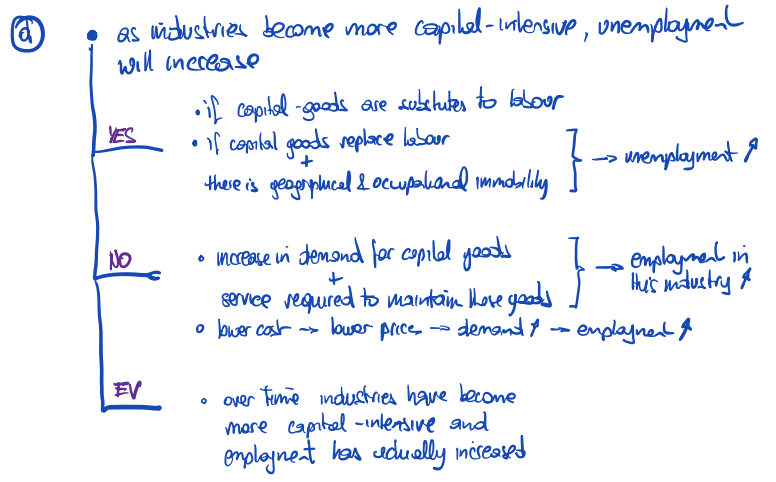 d
• as industries become more capital-intensive, unemployment
will increase
YES
• if capital-goods are substutes to labour
• if capital goods replace labour
+
there is geographical & occupational immobility
→ unemployment ↗
NO
• increase in demand for capital goods
+
service required to maintain these goods
→ employment in
this industry ↗
• lower cost → lower price → demand ↗ → employment ↗
EV
• over time industries have become
more capital-intensive and
employment has actually increased